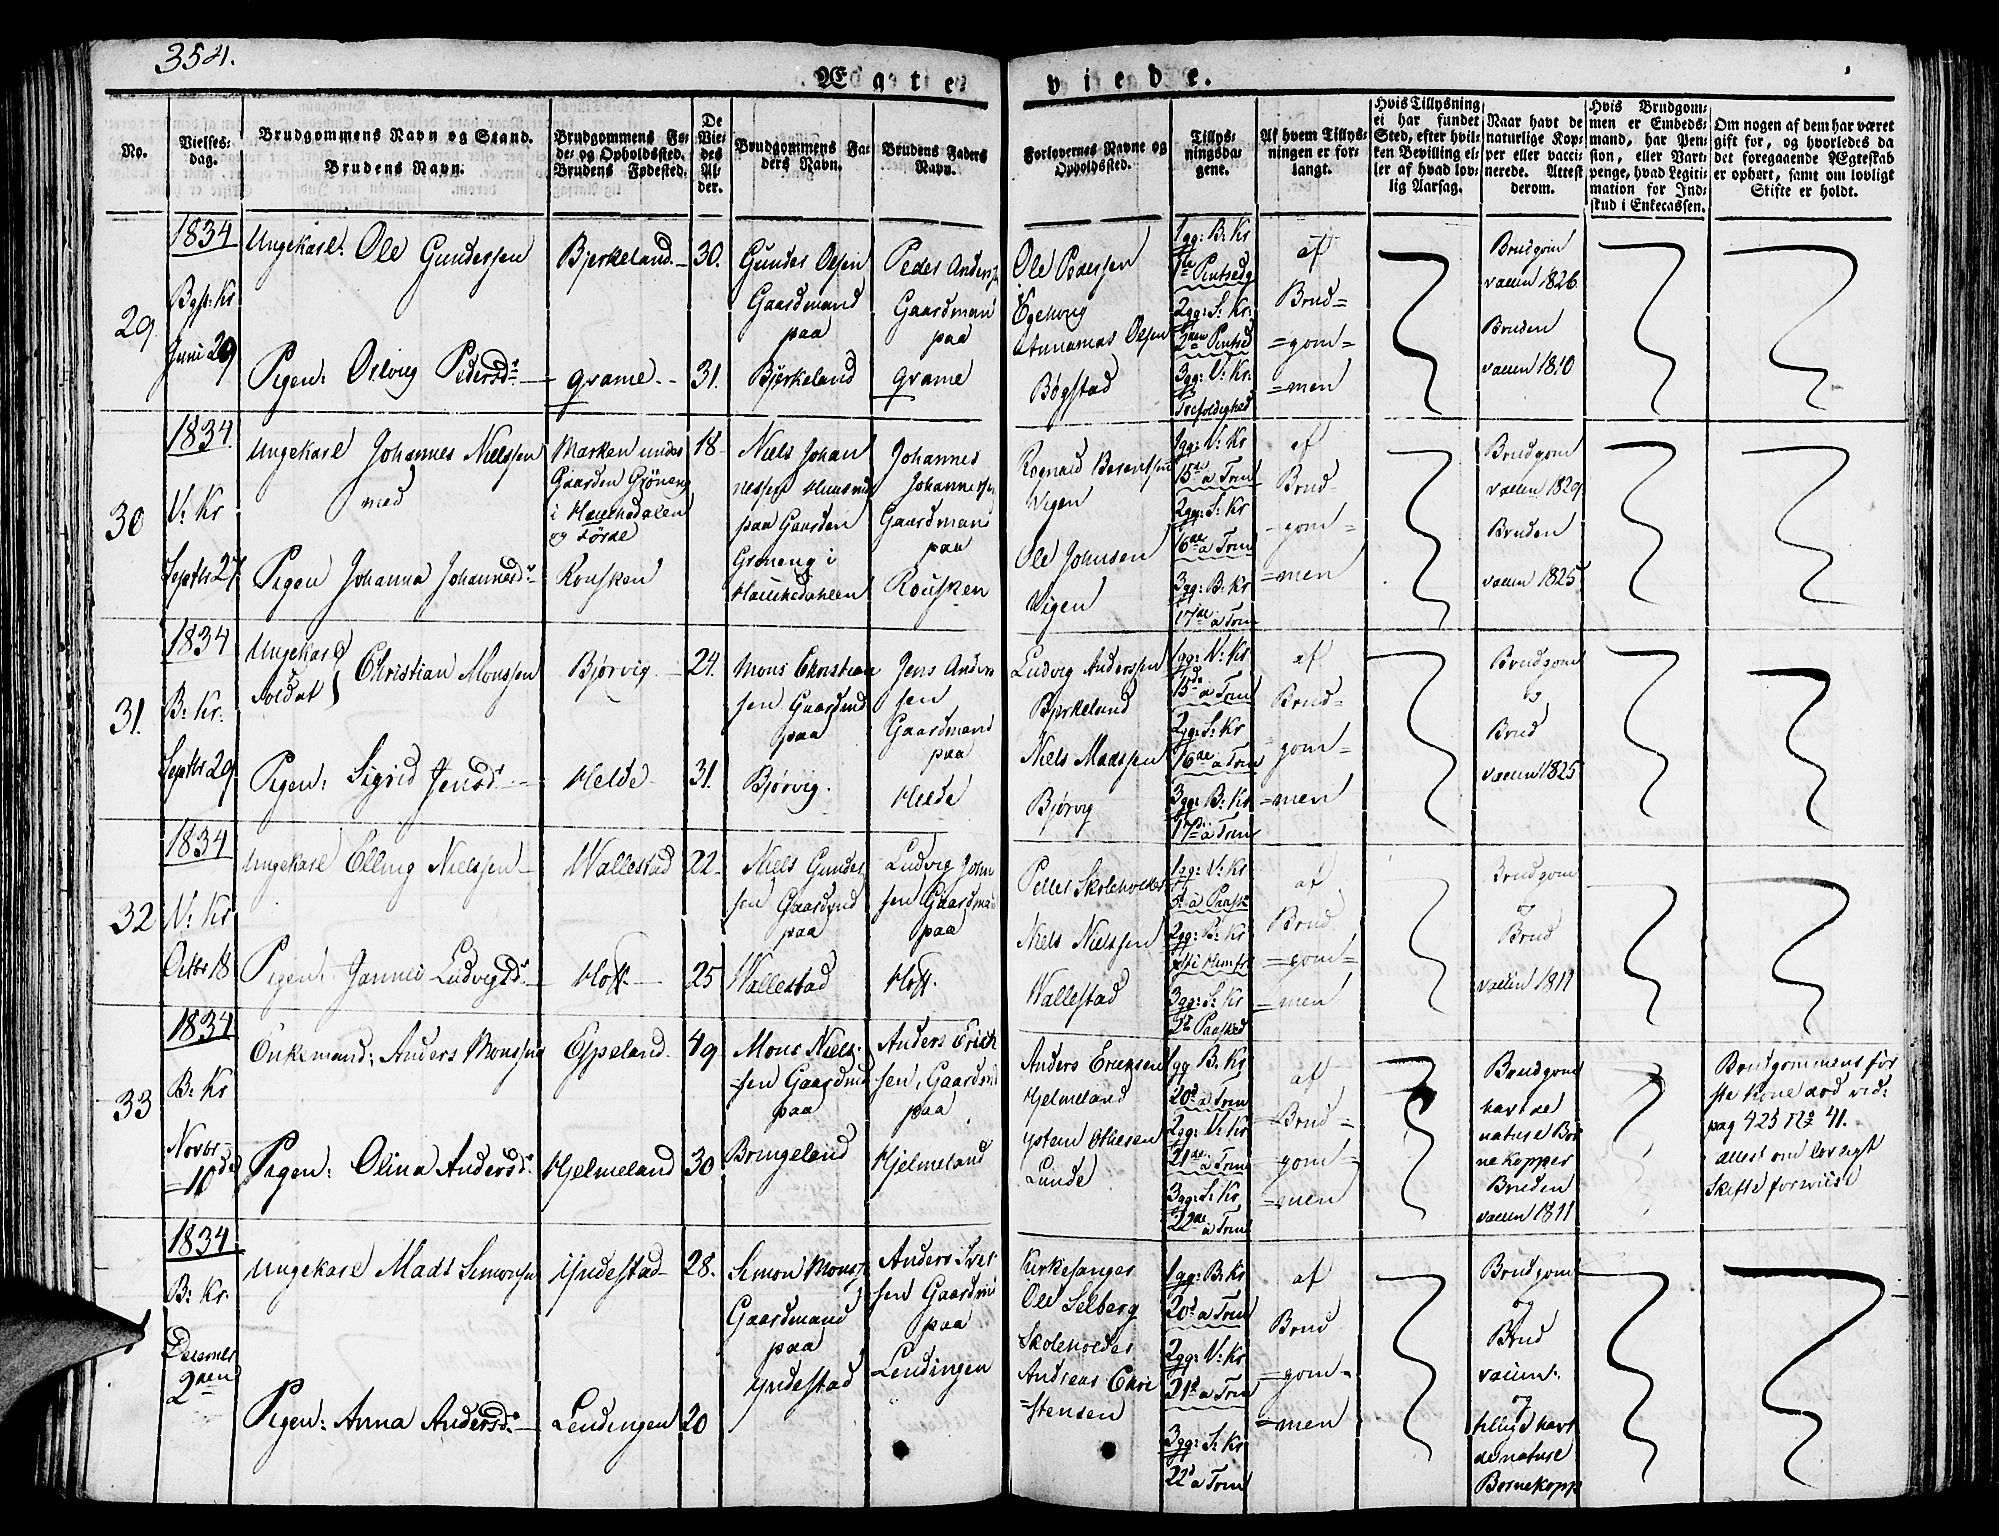 354.
Ægte
viede.
No.
Vielses-
dag.
Brudgommens Navn og Stand.
Brudens Navn.
Brudgommens Fø-
de- og Opholdssted.
Brudens Fødested.
De
Vie-
des
Al-
der.
Brudgommens Fa-
ders Navn.
Brudens Faders
Navn.
Forlovernes Navne og
Opholdssted.
Tillys-
ningsda-
gene.
Af hvem Tillys-
ningen er for-
langt.
Hvis Tillysning
ei har fundet
Sted, efter hvil-
ken Bevilling el-
ler af hvad lov-
lig Aarsag.
Naar havt de
naturlige Kop-
per eller vacci-
nerede. Attest
derom.
Hvis Brudgom-
men er Embeds-
mand, har Pen-
sion, eller Vart-
penge, hvad Legiti-
mation for Ind-
skud i Enkecassen.
Om nogen af dem har været
gift før, og hvorledes da
det foregaaende Ægteskab
er ophørt, samt om lovligt
Skifte er holdt.
29
1834
Bgst: Kr
Juni 29
Ungekarl: Ole Gundersen
Pigen: Oslvig Pedersd
Bjerkeland
Grame
30.
31.
Gunder Olsen
Gaardmand
paa
Bjerkeland
Peder Anders
Gaardman
paa
Grame
Ole Pedersen
Egehoug
Annanias Olsen
Bøgstad
1gg: B: Kr
1te Pintsedg
2gg: S: Kr:
2den Pintsed
3gg: V: Kr:
Trefoldighed
af
Brud=
=gom=
=men
Brudgom
vaccin 1826
Bruden
vaccin 1810
30
1834
V: Kr
Septbr 27
Ungekarl Johannes Nielssen
med
Pigen Johanna Johannesd
Marken under
Gaarden Grøneng
i Haukedalen
og Førde
Rousken
18
Niels Johan
nessen Huusmd
paa Gaarden
Grøneng i
Haukedahlen
Johannes
Johannessen
Gaardmand
paa
Rousken
Rognald Berentsen
Vigen
Ole Johnsen
Vigen
1gg: V: Kr
15de a Trin
2gg: S: Kr
16de a Trin
3gg: B: Kr
17de a Trin
af
Brud-
gom=
=men
Brudgom
vaccin 1829
Bruden
vaccin 1825
31.
1834
B: Kr.
Septbr 29
Ungekarl
Soldat } Christian Monssen
Pigen: Sigrid Jensd
Bjørvig
Helde
24.
31.
Mons Christian
sen Gaardmd
paa
Bjørvig.
Jens Anders
sen
Gaardmand
paa
Helde
Ludvig Anderssen
Bjerkeland
Niels Madssen
Bjørvig
1gg: V: Kr
15de a Trin
2gg: S: Kr
16de a Trin
3gg: B: Kr
17de a Trin
af
Brud-
gom=
=men
Brudgom
og
Brud
vaccin 1825
32
1834
V: Kr
Octbr 18
Ungekarl Elling Nielssen
Pigen: Janni Ludvigsd
Wallestad
Hoff.
22
25
Niels Gunder
sen Gaardmd
paa
Wallestad
Ludvig John
sen Gaardman
paa
Hoff.
Peder Skoleholder
Niels Nielssen
Wallestad
1gg: V: Kr
5 a Paask
2gg: B: Kr
3gg: S: Kr
2 Paasked
af
Brud
=gom=
=men
Brudgom
og
Brud
vaccin 1811
33
1834
B: Kr
Novbr
10de
Enkemand: Anders Monssen
Pigen: Olina Andersd
Espeland
Hjelmeland
49
30
Mons Niels-
sen Gaardmd
paa
Bringeland
Anders Erich
sen, Gaardmd
paa
Hjelmeland
Anders Ericksen
Hjelmeland
Ystein Othesen
Lunde
1gg B: Kr
20de a Trin
2gg: V: Kr
21de a Trin
3gg: S: Kr
22de a Trin
af
=Brud=
gom=
=men
Brudgom
havt de
nature Bør
nekopper
Bruden
vaccin 1811
Brudgommens før
ste Kone død vid:
pag 425 No 41.
Attest om lovligt
Skifte forviist
1834
B: Kr.
December
2den
Ungekarl Mads Simonsen
Pigen: Anna Andersd
Yndestad
Lendingen
28.
20
Simon Monss
Gaardmand
paa
Yndestad
Anders Iver
sen Gaardmd
paa
Lendingen
Kirkesanger
Ole Selberg
Skoleholder
Andreas Chri
=stensen
1gg: B: Kr
20d a Trin
2gg: V: Kr
21d a Trin
3gg: S: Kr
22d a Trin
af
Brud
=gom=
=men
Brudgom
og
Brud
vaccin:
og
tillige havt
de nature
Børnekopp